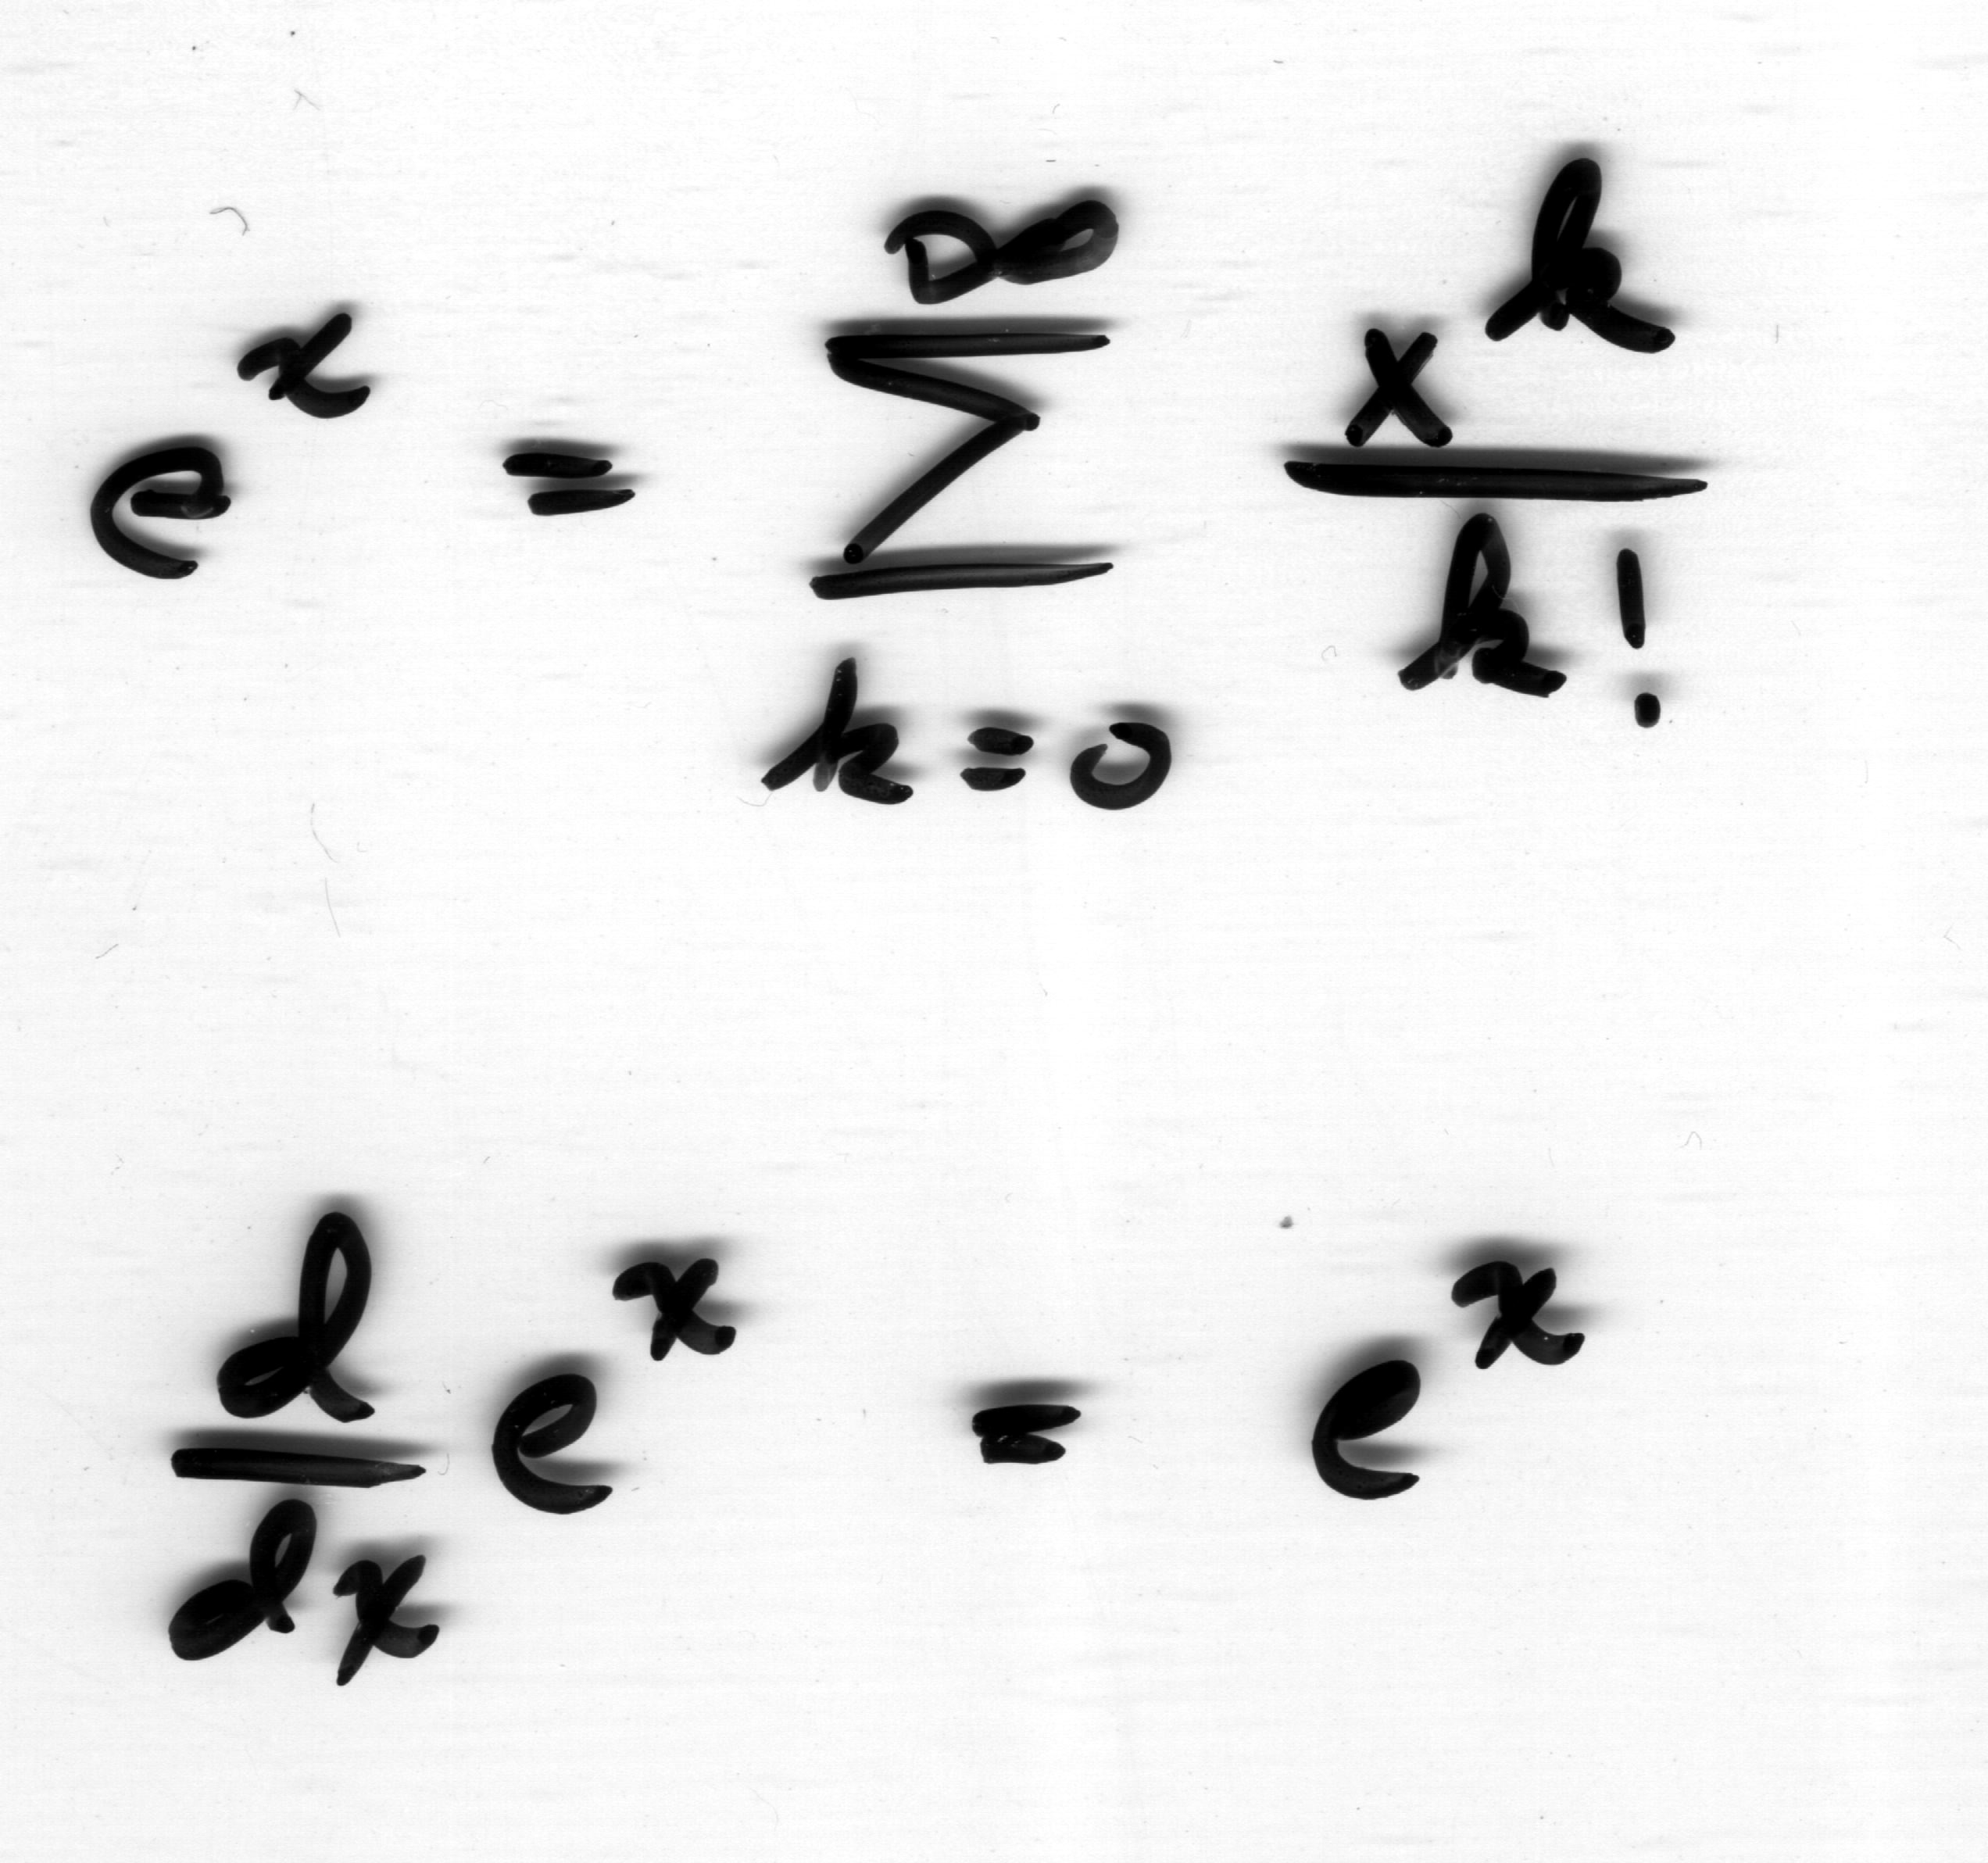 e^x = ∑_{k=0}^{∞} x^k / k!
d/dx e^x = e^x